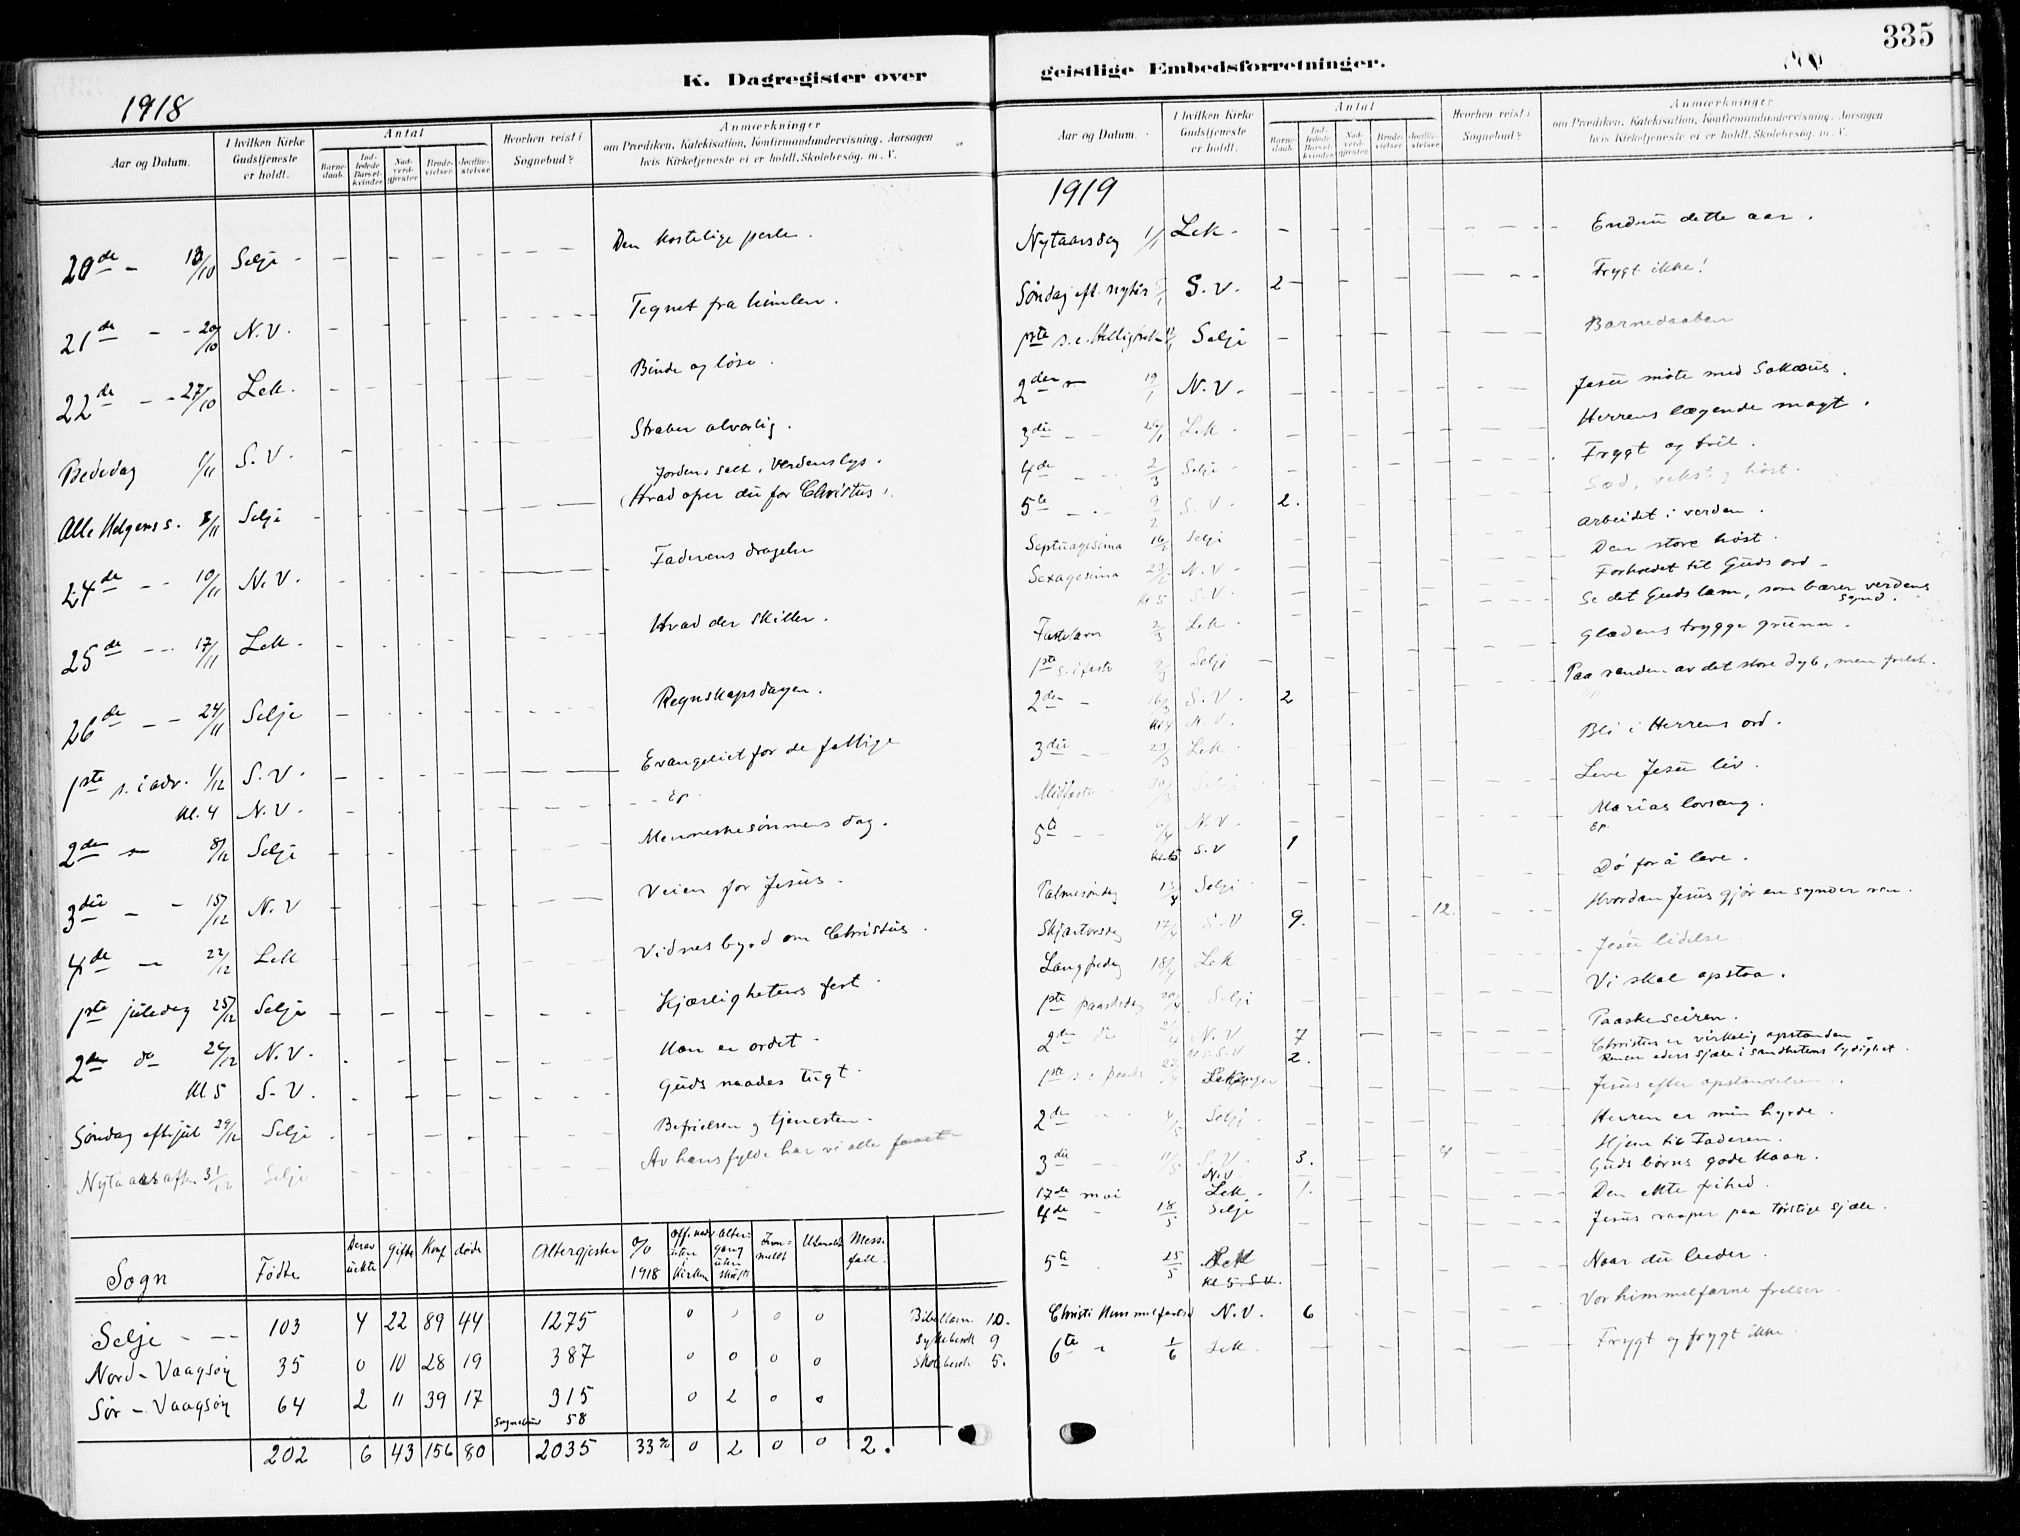 335
K. Dagregister over
geistlige Embedsforretninger.
1918
Aar og Datum.
I hvilken Kirke Gudstjeneste er holdt.
Antal
Barne-daab.
Ind-ledede Barsel-kvinder
Nad-verd-gjester
Brude-vielser
Jordfæ-stelser
Hvorhen reist i Sognebud?
Anmærkninger
om Prædiken, Katekisation, Konfirmandundervisning, Aarsagen
hvis Kirketjeneste ei er holdt, Skolebesög. m. V.
20de - 13/10 Selje - Den kostelige perle.
21de - - 20/10 N.V. Tegnet fra himlen.
22de - - 27/10 Lek. Binde og løse.
Bededag 1/11 S.V. Straben alvorlig.
Jordens salt, Verdens lys.
Alle Helgens s. 3/11 Selje (Hvad ofrer du for Christus).
24de - - 10/11 N.V. Faderens dragelse
25de - - 17/11 Lek. Hvad der skiller.
26de - - 24/11 Selje Regnskapsdagen.
1ste s. i adv. 1/12 S.V. Evangeliet for de fattige
Kl. 4 N.V. - - Ep.
2den - 8/12 Selje Menneskesønnens dag.
3die - - 15/12 N.V Veien for Jesus.
4de - 22/12 Lek Vidnesbyrd om Christus.
1ste juledag 25/12 Selje Kjærlighetens fest.
2den do 26/12 N.V. Han er ordet.
Kl 5 S.V. Guds naades tugt.
Søndag eft. jul 29/12 Selje Befrielsen og tjenesten.
Nytaarsaften 31/12 Selje Av hans fylde har vi alle faaet
Sogn Født Gifte Konf døde Altergjester 0/0 1918
Selje - -- 103 4 22 89 44 1275 0 0 0 10.
Nord-Vaagsøy 35 0 10 28 19 387 0 0 0 0 9
Sør-Vaagsøy 64 2 11 39 17 315 0 2 0 0 5.
58
202 6 43 156 80 2035 33% 0 2 0 0 2.
Aar og Datum.
I hvilken Kirke Gudstjeneste er holdt.
Antal
Barne-daab.
Ind-ledede Barsel-kvinder
Nad-verd-gjester
Brude-vielser
Jordfæ-stelser
Hvorhen reist i Sognebud?
Anmærkninger
om Prædiken, Katekisation, Konfirmandundervisning, Aarsagen
hvis Kirketjeneste ei er holdt, Skolebesög. m. V.
1919
Nytaarsdag 1/1 Lek - Endnu dette aar.
Søndag eft. nytår S.V. 2 Frygt ikke!
1ste s. e. Hellig Selje Barnedaaben
2den - 19/1 N.V. Jesu møte med Sakæus.
3die - - 26/1 Lek Herrens lægende magt.
4de - - 2/3 Selje Frygt og tvil.
5te - - 9/2 S.V. 2. Sæd, vekst og høst.
Septuagesima 16/2 Selje arbeidet i verden.
Sexagesima 23/2 N.V. Den store høst.
Kl 5 S.V. Forholdet til Guds ord -
Fastelavn 2/3 Lek. Se det Guds lam, som bærer verdens synd.
1ste s. i faste 9/3 Selje Glædens trygge grunn.
2den - 16/3 S.V. 2 Paa randen av det store dyb, men frelst.
Kl 4 N.V. Ep.
3die - - 23/3 Lek. Bli i Herrens ord.
Midfaste 30/3 Selje Leve Jesu liv.
5te - - 6/4 N.V. Marias lovsang.
S.V 1 Ep.
Palmesøndag 13/4 Selje Dø for å leve.
Skjærtorsdag 17/4 S.V 9. 12. Hvordan Jesus gjør en synder ren.
Langfredag 18/4 Lek. Jesu lidelse
1ste paaskedag 20/4 Selje Vi skal opstaa.
2den do 21/4 N.V 7 Paaskeseiren.
S.V 2. Christus er virkelig opstanden
Renser eders sjæle i sandhetens lydighet.
1ste s. e. paaske 27/4 Leikanger Jesus efter opstandelsen.
2den 4/5 Selje Herren er min hyrde.
3die 11/5 S.V. 3. 4 Hjem til Faderen.
N.V. Guds børns gode kaar.
17de mai Lek. 1. Den ekte frihed.
4de - 18/5 Selje Jesus raaper paa tørstige sjæle.
5te 25/5 Lek Naar du beder.
Kl 5. S.V.
Christi Himmelfartsd N.V. 6 Vor himmelfarne frelser
6te - 1/6 Lek. Frygt og frygt ikke.